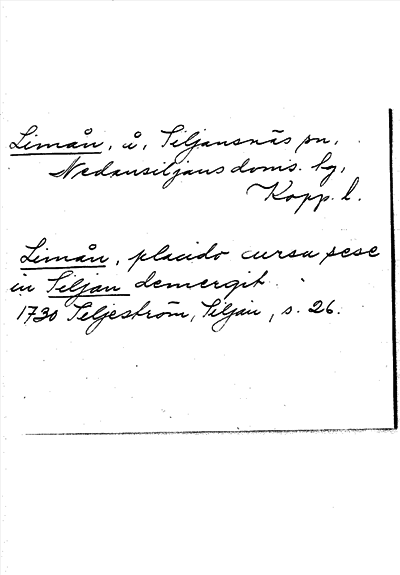 Limån, å, Siljansnäs sn,
Nedansiljans doms. hg,
Kopp. l.
Limån, placido cursu sese
in Siljan demergit.
1730 Siljeström, Siljan, s. 26.